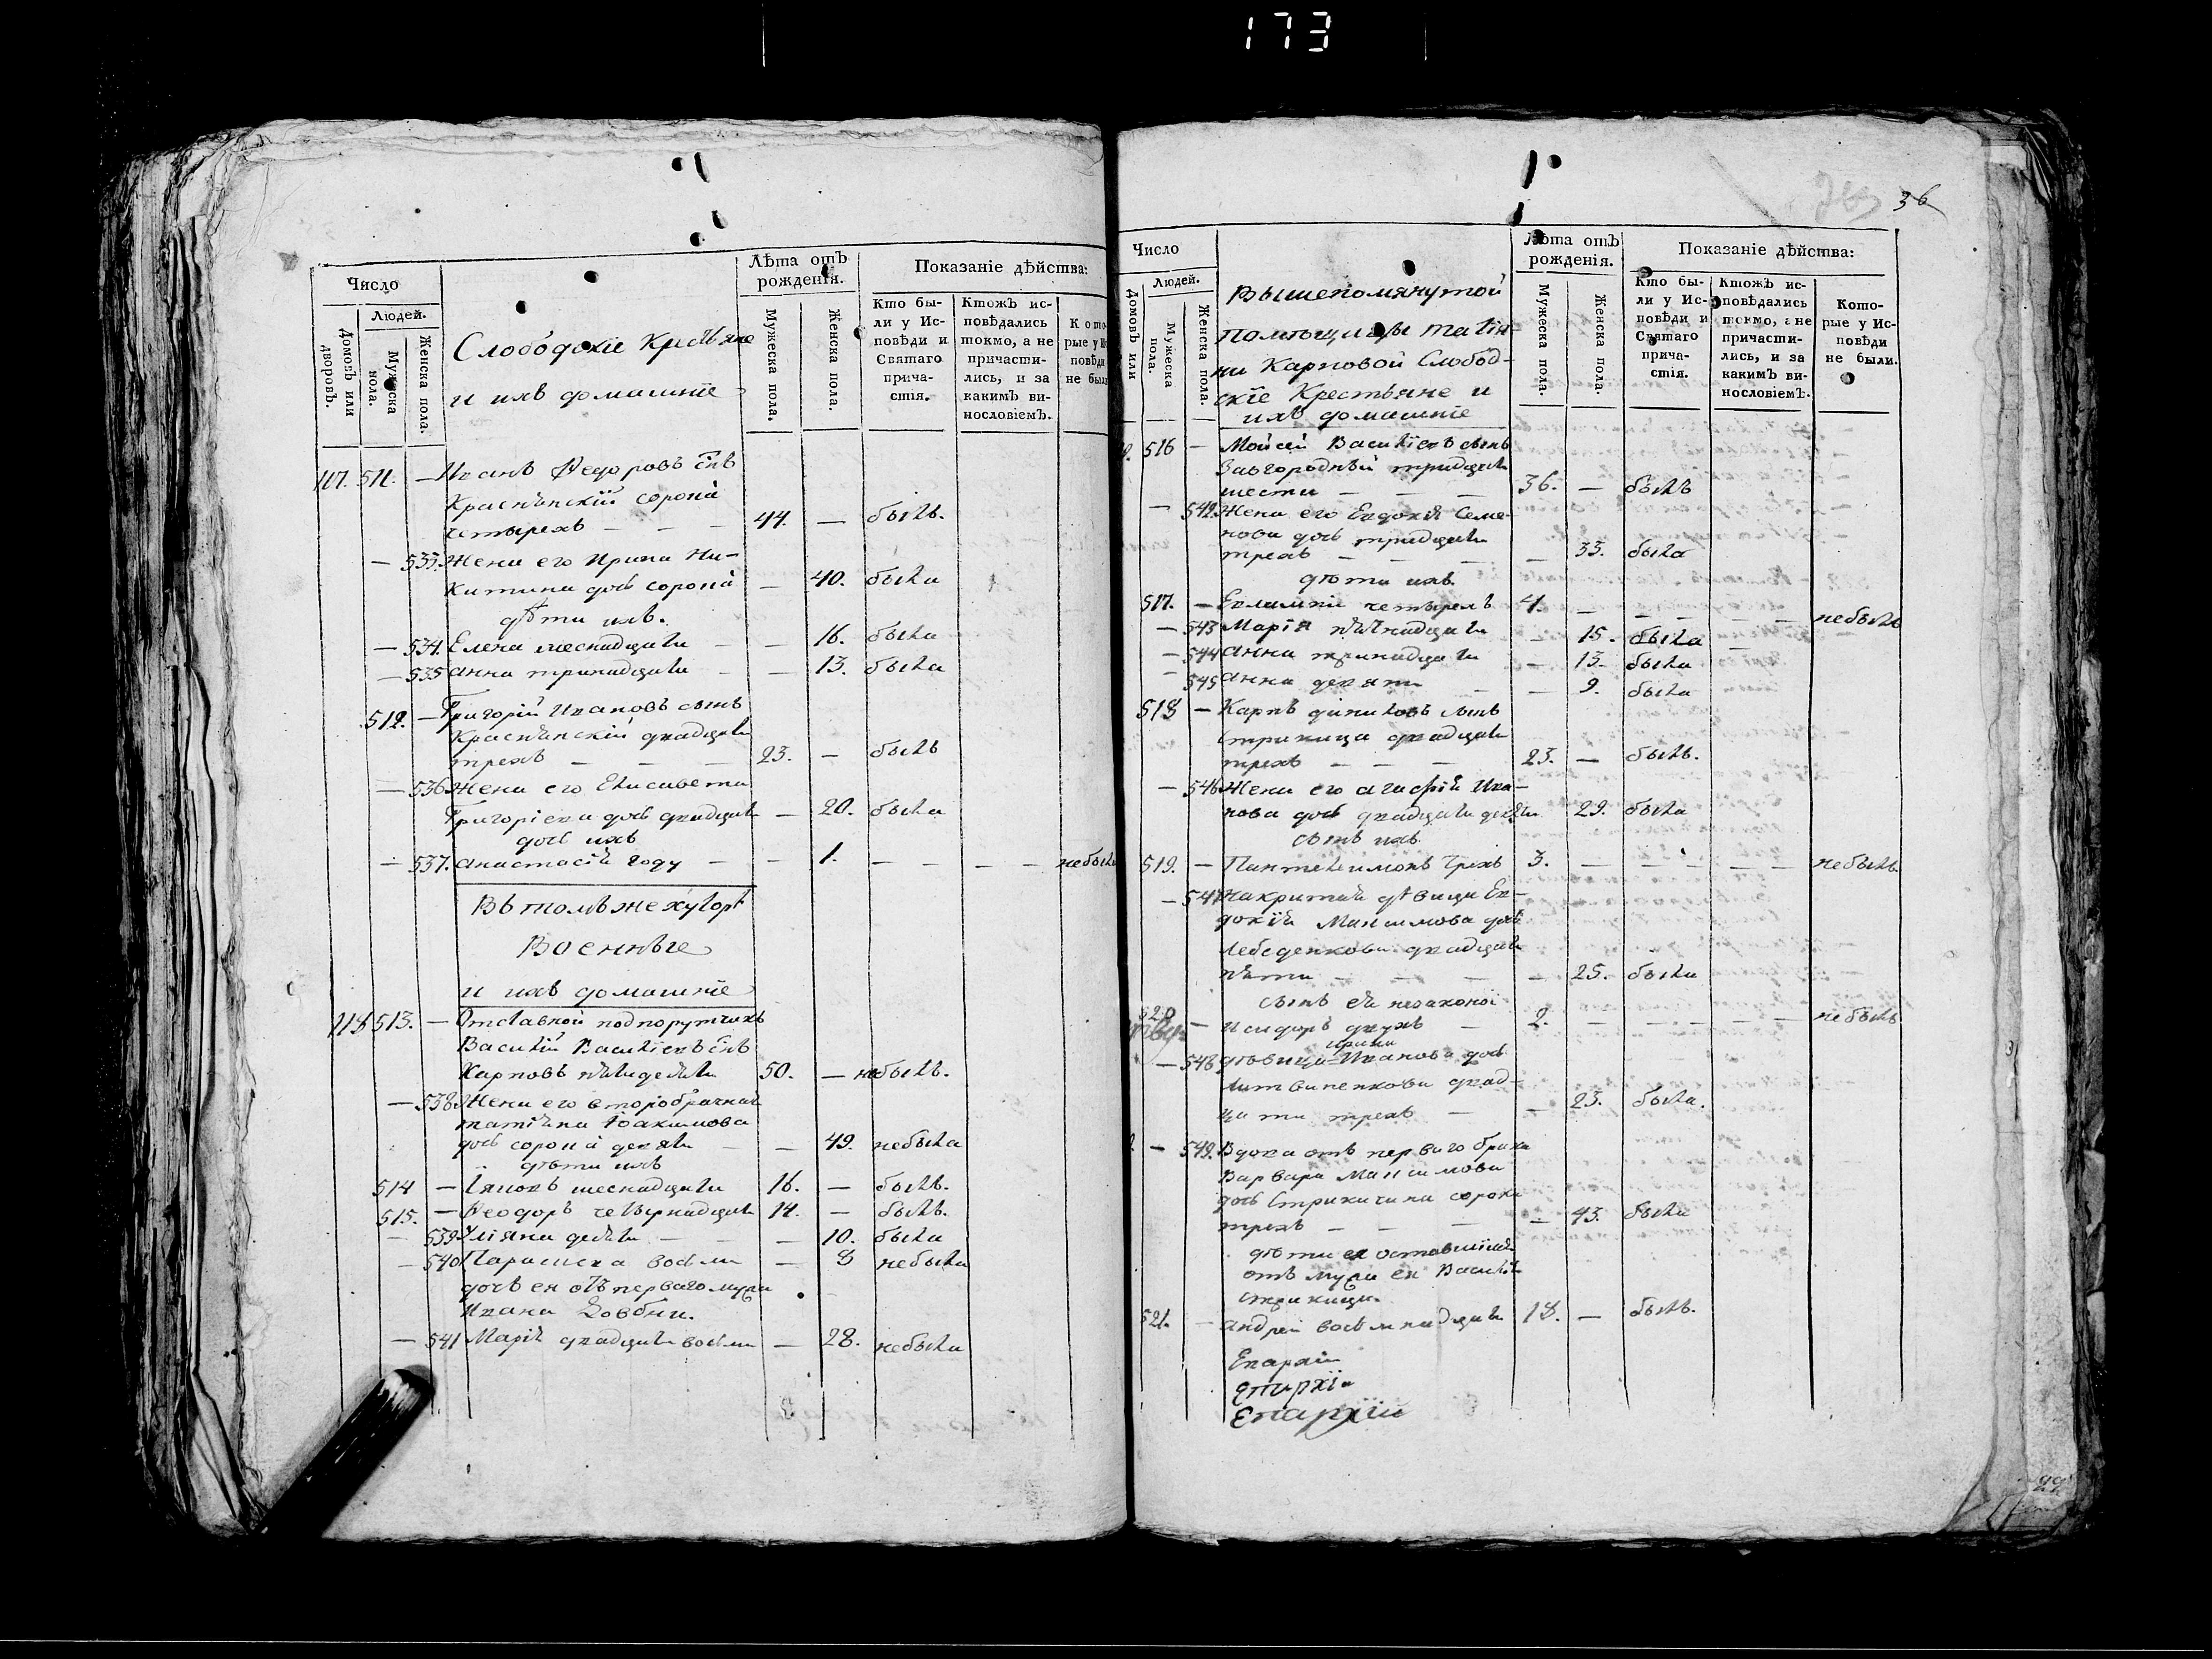 173
Число
Людей.
Домовъ или дворовъ.
Мужеска пола.
Женска пола.
Слободскіе Крестьяне
и ихъ домашніе
Лѣта отъ рожденія.
Мужеска пола.
Женска пола.
Показаніе дѣйства:
Кто бы-
ли у Ис-
повѣди и
Святаго
прича-
стія.
Ктожъ ис-
повѣдались
токмо, а не
причасти-
лись, и за
какимъ ви-
нословіемъ.
Кото-
рые у Ис-
повѣди
не были
117. 511. — Иванъ Федоровъ снъ
сорока
четырехъ — — — 44. — былъ.
— 533. Жена его Ирина Ни-
китина дочь сорока — 40. была
дѣти ихъ.
— 534. Елена шеснадцати — — 16. была
— 535 анна тринадцати — — 13. была
512. — Григорій Ивановъ сынъ
двадцати
трехъ — — — 23. — былъ
— 536 Жена его Елисавета
Григоріева дочь двадцати — 20. была
дочь ихъ
— 537. анастасія году — — 1. — — — — небыла
Въ томъ же хуторѣ
Военные
и ихъ домашніе
118 513. — Отставной подпорутчикъ
Василій Василіевъ снъ
Карповъ пятидесяти 50. — небылъ.
— 538. Жена его второбрачная
татіана Іоакимова
дочь сорока девяти — — 49. небыла
дѣти ихъ
514 — шеснадцати 16. — былъ.
515. — Феодоръ четырнадцати 14. — былъ.
— 539 Уліяна десяти — — — 10. была
— 540 Параскева восьми — 8 небыла
дочь ея отъ перваго мужа
Ивана Довбни.
— 541 Марія двадцати восьми — 28. небыла
36
Число
Людей.
Домовъ или
Мужеска пола.
Женска пола.
Вышепомянутой
помѣщицы татія-
ни Карповой Слобод-
скіе Крестьяне и
ихъ домашніе
Лѣта отъ рожденія.
Мужеска пола.
Женска пола.
Показаніе дѣйства:
Кто бы-
ли у Ис-
повѣди и
Святаго
прича-
стія.
Ктожъ ис-
повѣдались
токмо, а не
причасти-
лись, и за
какимъ ви-
нословіемъ.
Кото-
рые у Ис-
повѣди
не были.
516 — Мойсей Василіевъ сынъ
Завгородній тридцати
шести — — — 36. — былъ
— 542. Жена его Евдокія Семе-
нова дочь тридцати
трехъ — — — — 33. была
дѣти ихъ.
517. — Евлампій четырехъ 4. — — — — — небылъ
— 543 Марія пятнадцати — 15. была
— 544 анна тринадцати — 13. была
— 545 анна девяти — — 9. была
518 — Карпъ сынъ
двадцати
трехъ — — — 23. — былъ.
— 546 Жена его агафія Ива-
нова дочь двадцати девяти 29. была
сынъ ихъ.
519. — Пантелеимонъ трехъ 3. — — — — — небылъ.
— 547 Накритая дѣвица Ев-
докія Максимова дочь
Лебеденкова двадцати
пяти — — — — 25. была
сынъ ея незаконой
520 — Исидоръ двухъ — 2. — — — — — небылъ
— 548 дѣвица Ирина Иванова дочь
Литвиненкова двад-
цати трехъ — — 23. была.
— 549. Вдова отъ перваго брака
Варвара Максимова
дочь сорока
трехъ — — — — 43. была
дѣти ея оставшіися
отъ мужа ея Василія
521. — андрей восьмнадцати 18. — былъ.
Епархіи
Епархіи